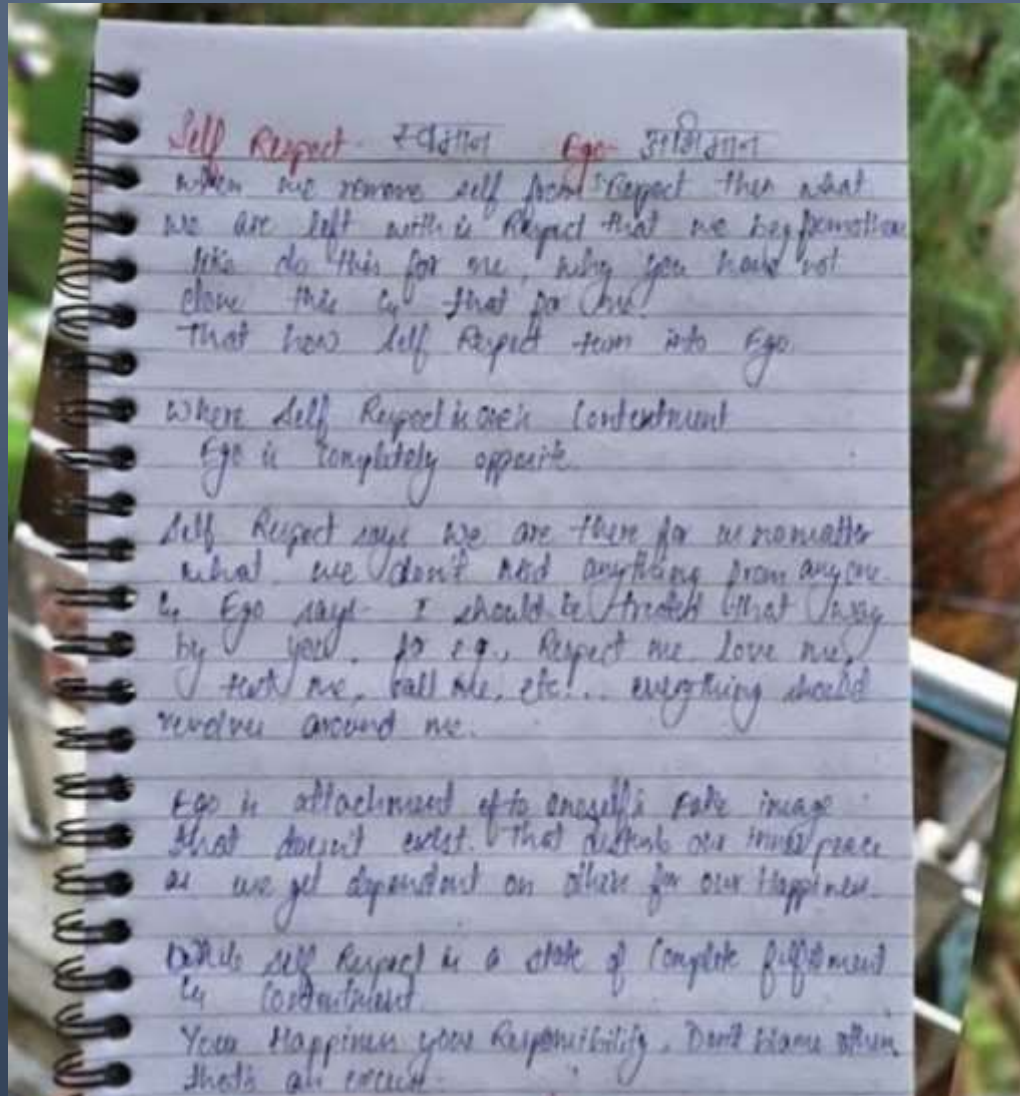 Self Respect- स्वमान Ego- अभिमान
When we remove self from Respect then what
we are left with is Respect that we beg from others
like do this for me, why you have not
done this & that for me.
That how Self Respect turn into Ego.
Where Self Respect is Contentment
Ego is completely opposite.
Self Respect says we are there for us no matter
what we don't need anything from anyone
& Ego says- I should be treated that way
by you. for eg., Respect me, love me,
text me, call me, etc... everything should
revolves around me.
Ego is attachment to oneself's Fake image
that doesn't exist. That disturb our inner peace
as we get dependent on others for our Happiness.
While self Respect is a state of Complete fulfilment
& Contentment.
Your Happiness your Responsibility. Don't blame others
that's an excuse.